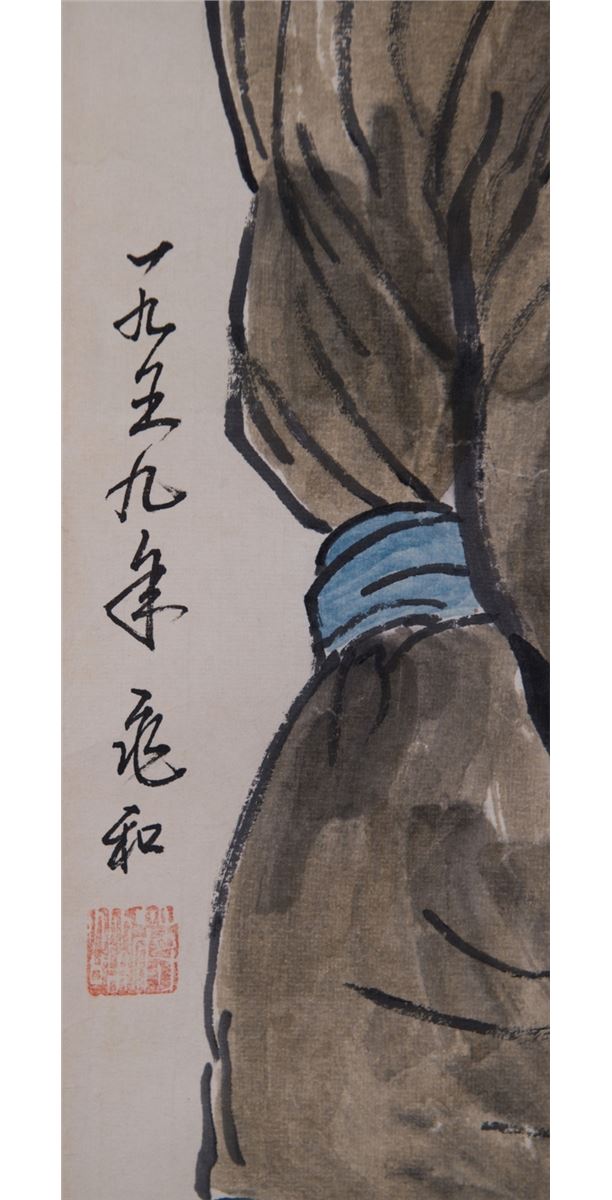 一九五九年 兆和